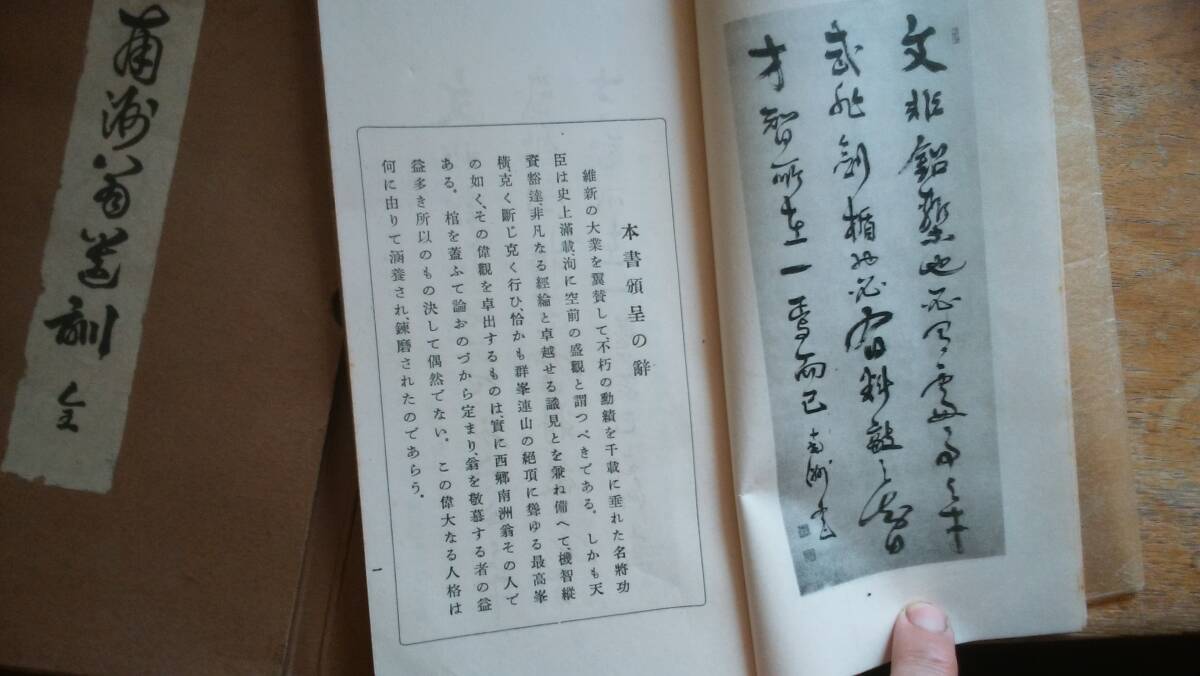 文非鉛槧也必有處事之才
武非劍楯也必有料敵之智
才智所在一焉而已 南洲書
本書頒呈の辭
維新の大業を翼賛して、不朽の勳績を千載に垂れた名將功
臣は史上滿載、洵に空前の盛觀と謂つべきである。しかも天
資豁達、非凡なる經綸と卓越せる識見とを兼ね備へて、機智縱
橫克く斷じ克く行ひ、恰かも群峯連山の絕頂に聳ゆる最高峯
の如く、その偉觀を卓出するものは、實に西鄕南洲翁その人で
ある。棺を蓋ふて論おのづから定まり、翁を敬慕する者の益
益多き所以のもの決して偶然でない。この偉大なる人格は
何に由りて涵養され、鍊磨されたのであらう。
一
南洲翁遺訓 全